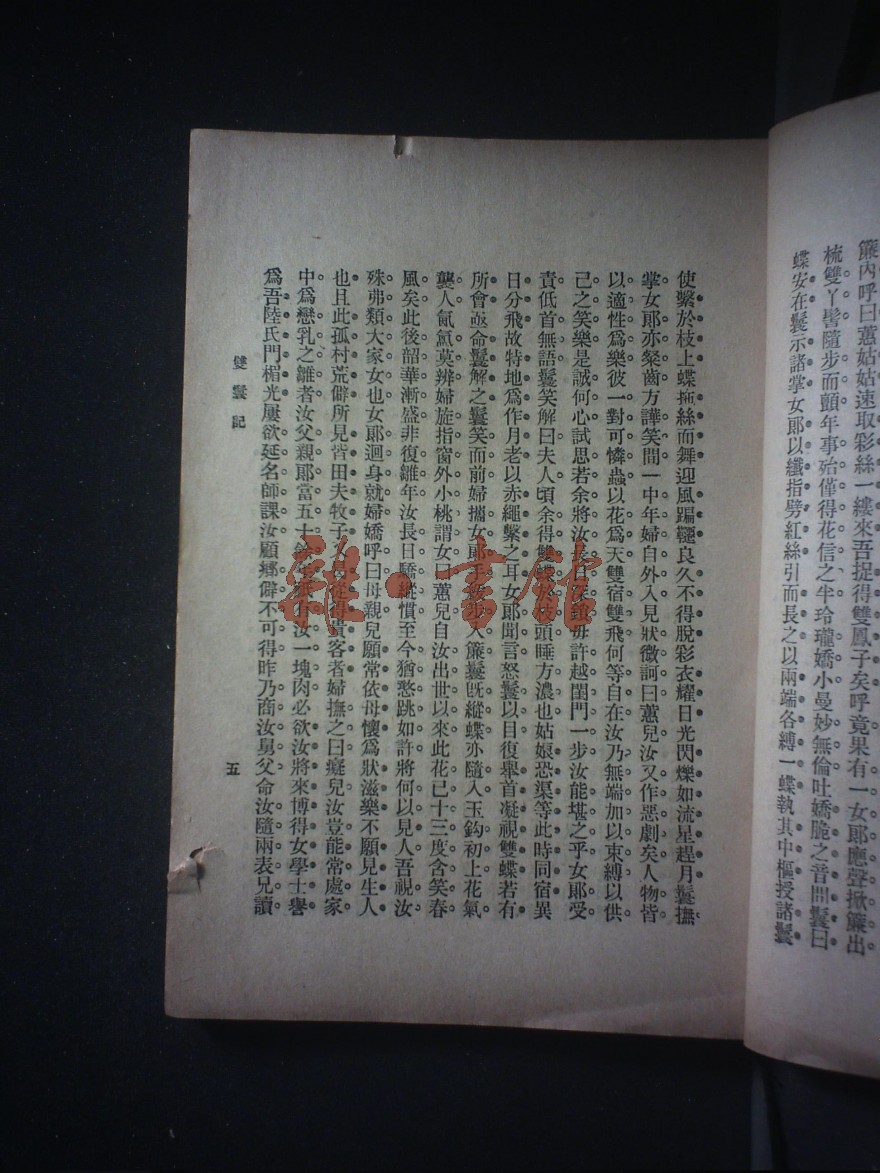 簾內呼曰蕙姑姑速取彩絲一縷來吾捉得雙鳳子矣呼竟果有一女郞應聲掀簾出
梳雙丫髻隨步而顫年事殆僅得花信之半玲瓏嬌小曼妙無倫吐嬌脆之音問鬟曰
蝶安在鬟示諸掌女郞以纖指劈紅絲引而長之以兩端各縛一蝶執其中樞授諸鬟
使繫於枝上蝶拖絲而舞迎風蹁躚良久不得脫彩衣耀日光閃爍如流星趕月鬟撫
掌女郞亦粲齒方譁笑間一中年婦自外入見狀微訶曰蕙兒汝又作惡劇矣人物皆
以適性爲樂彼一對可憐蟲以花爲天雙宿雙飛何等自在汝乃無端加以束縛以供
己之笑樂是誠何心試思若余將汝長日深錮毋許越閨門一步汝能堪之乎女郞受
責低首無語鬟笑解曰夫人頃余得雙蝶於枝頭睡方濃也姑娘恐渠等此時同宿異
日分飛故特地爲作月老以赤繩繫之耳女郞聞言怒鬟以目復舉首凝視雙蝶若有
所會亟命鬟解之鬟笑而前婦攜女郞手緩步入簾鬟旣縱蝶亦隨入玉鈎初上花氣
襲人氤氳莫辨婦旋指窗外小桃謂女曰蕙兒自汝出世以來此花已十三度含笑春
風矣此後韶華漸盛非復雛年汝長日驕縱慣至今猶憨跳如許將何以見人吾視汝
殊弗類大家女也女郞迴身就婦嬌呼曰母親兒願常依母懷爲狀滋樂不願見生人
也且此孤村荒僻所見皆田夫牧子人從得貴客者婦撫之曰癡兒汝豈能常處家
中爲戀乳之雛者汝父親郞當五十餘生祇有汝一塊肉必欲汝將來博得女學士譽
爲吾陸氏門楣光屢欲延名師課汝顧鄕僻不可得昨乃商汝舅父命汝隨兩表兄讀
雙記
五
雜·書館